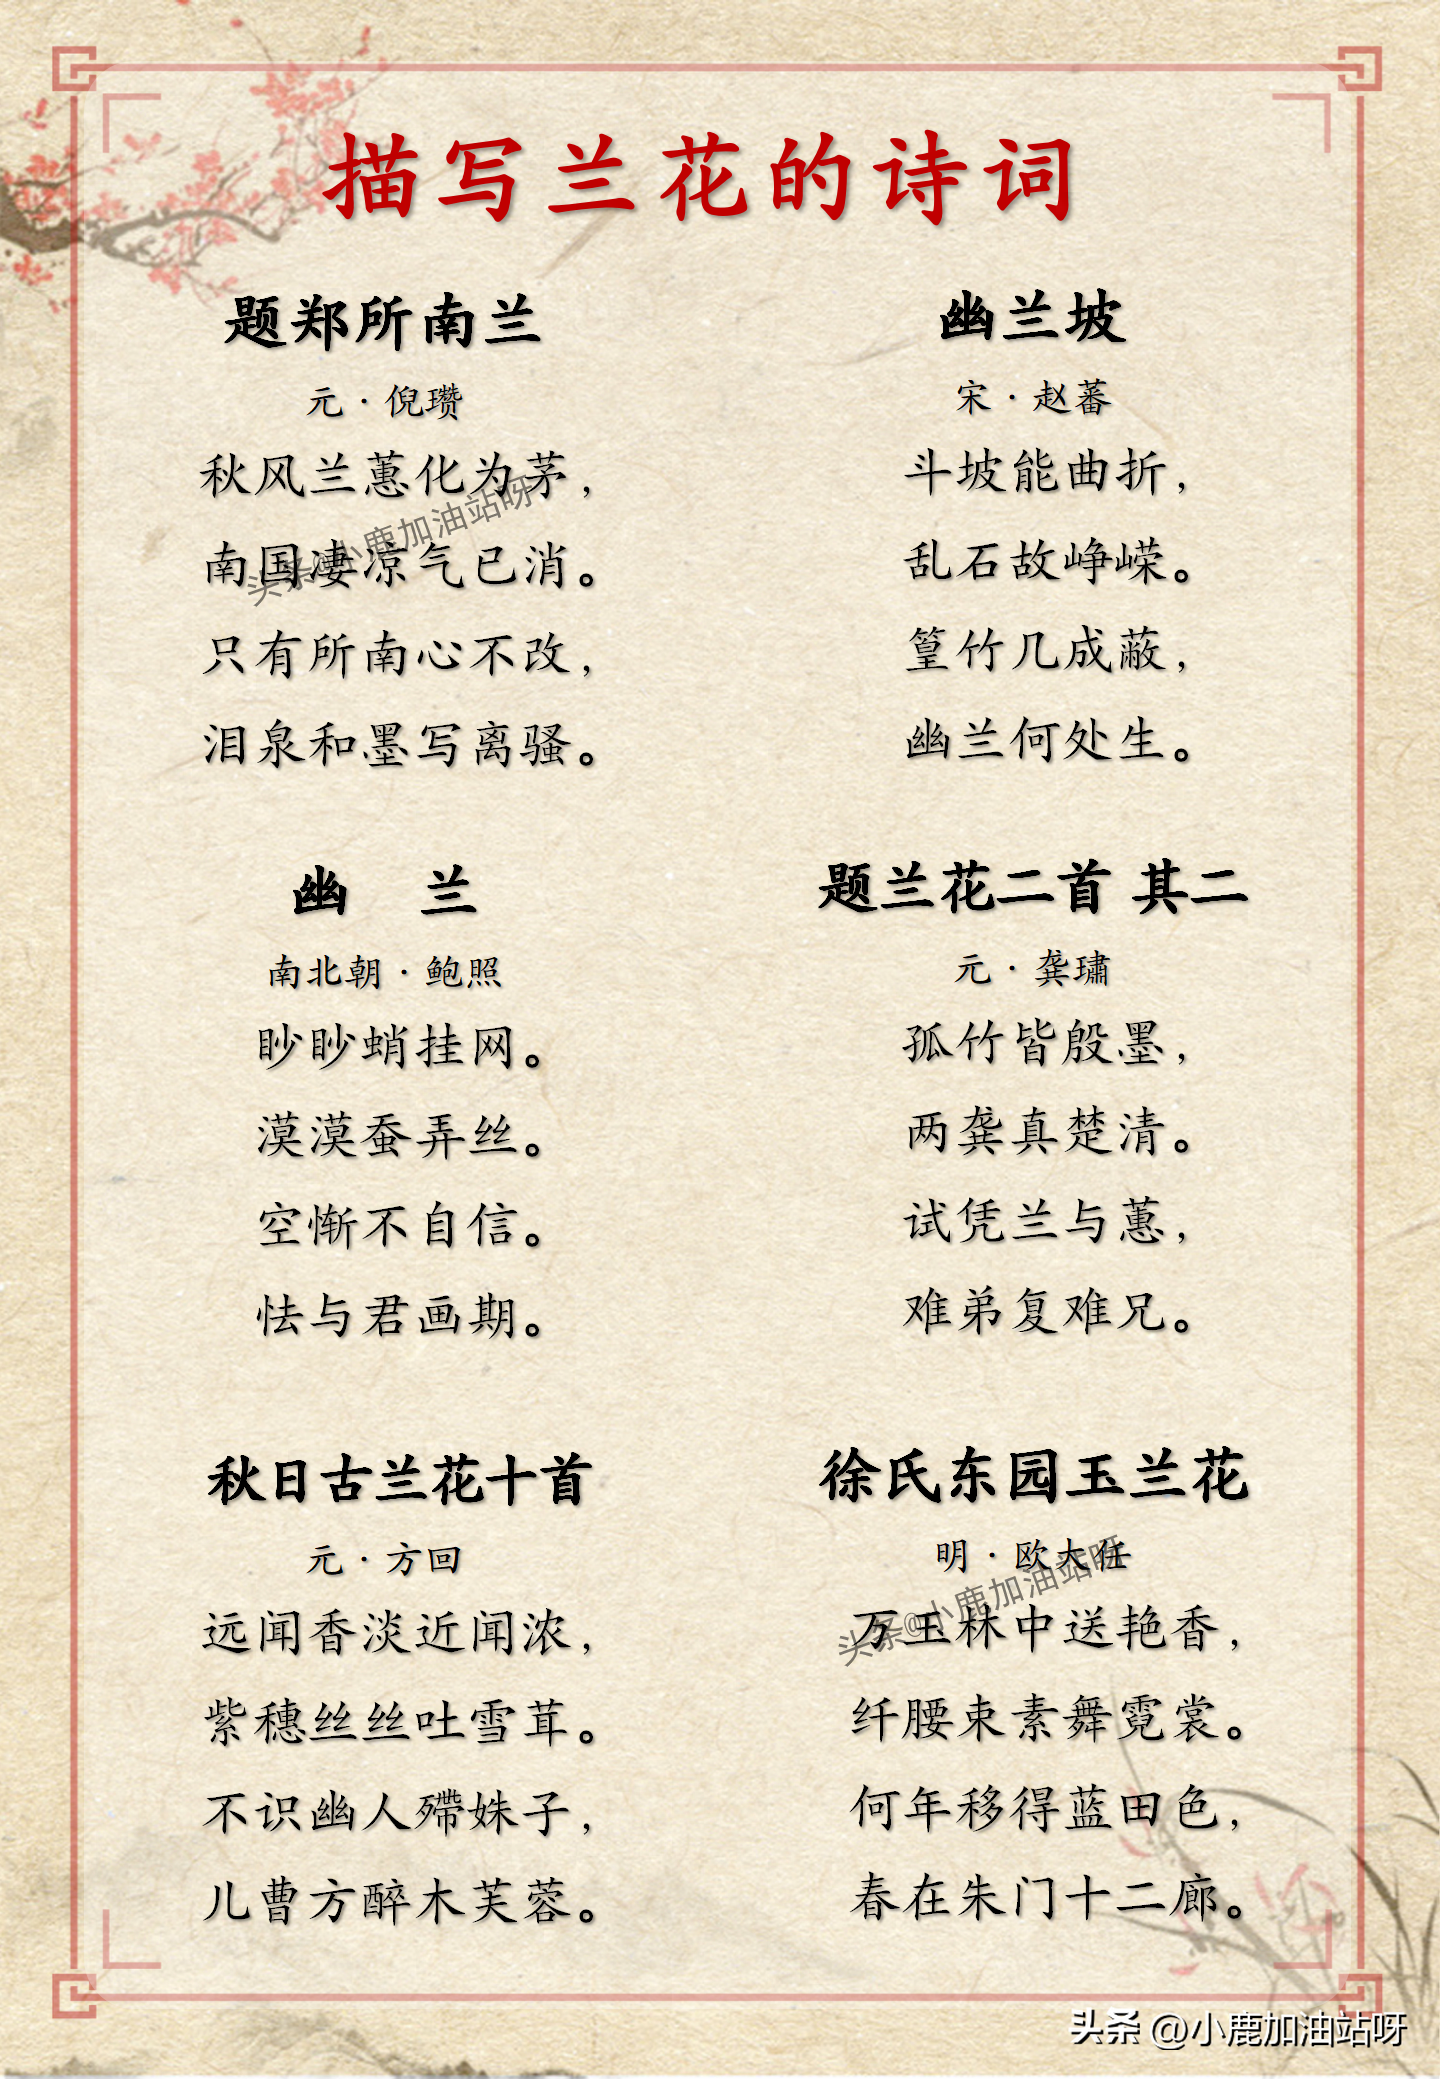 描写兰花的诗词
题郑所南兰
元·倪瓒
秋风兰蕙化为茅，
南国凄凉气已消。
只有所南心不改，
泪泉和墨写离骚。
幽兰坡
宋·赵蕃
斗坡能曲折，
乱石故峥嵘。
篁竹几成蔽，
幽兰何处生。
幽 兰
南北朝·鲍照
眇眇蛸挂网。
漠漠蚕弄丝。
空惭不自信。
怯与君画期。
题兰花二首 其二
元·龚璛
孤竹皆殷墨，
两龚真楚清。
试凭兰与蕙，
难弟复难兄。
秋日古兰花十首
元·方回
远闻香淡近闻浓，
紫穗丝丝吐雪茸。
不识幽人殢姝子，
儿曹方醉木芙蓉。
徐氏东园玉兰花
明·欧大任
万玉林中送艳香，
纤腰束素舞霓裳。
何年移得蓝田色，
春在朱门十二廊。
头条@小鹿加油站呀
头条@小鹿加油站呀
头条 @小鹿加油站呀